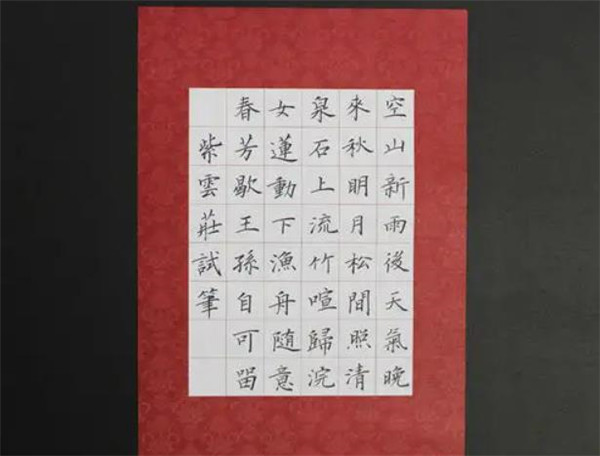 空山新雨後天氣晚
來秋明月松間照清
泉石上流竹喧歸浣
女蓮動下漁舟随意
春芳歇王孫自可留
紫雲莊試筆